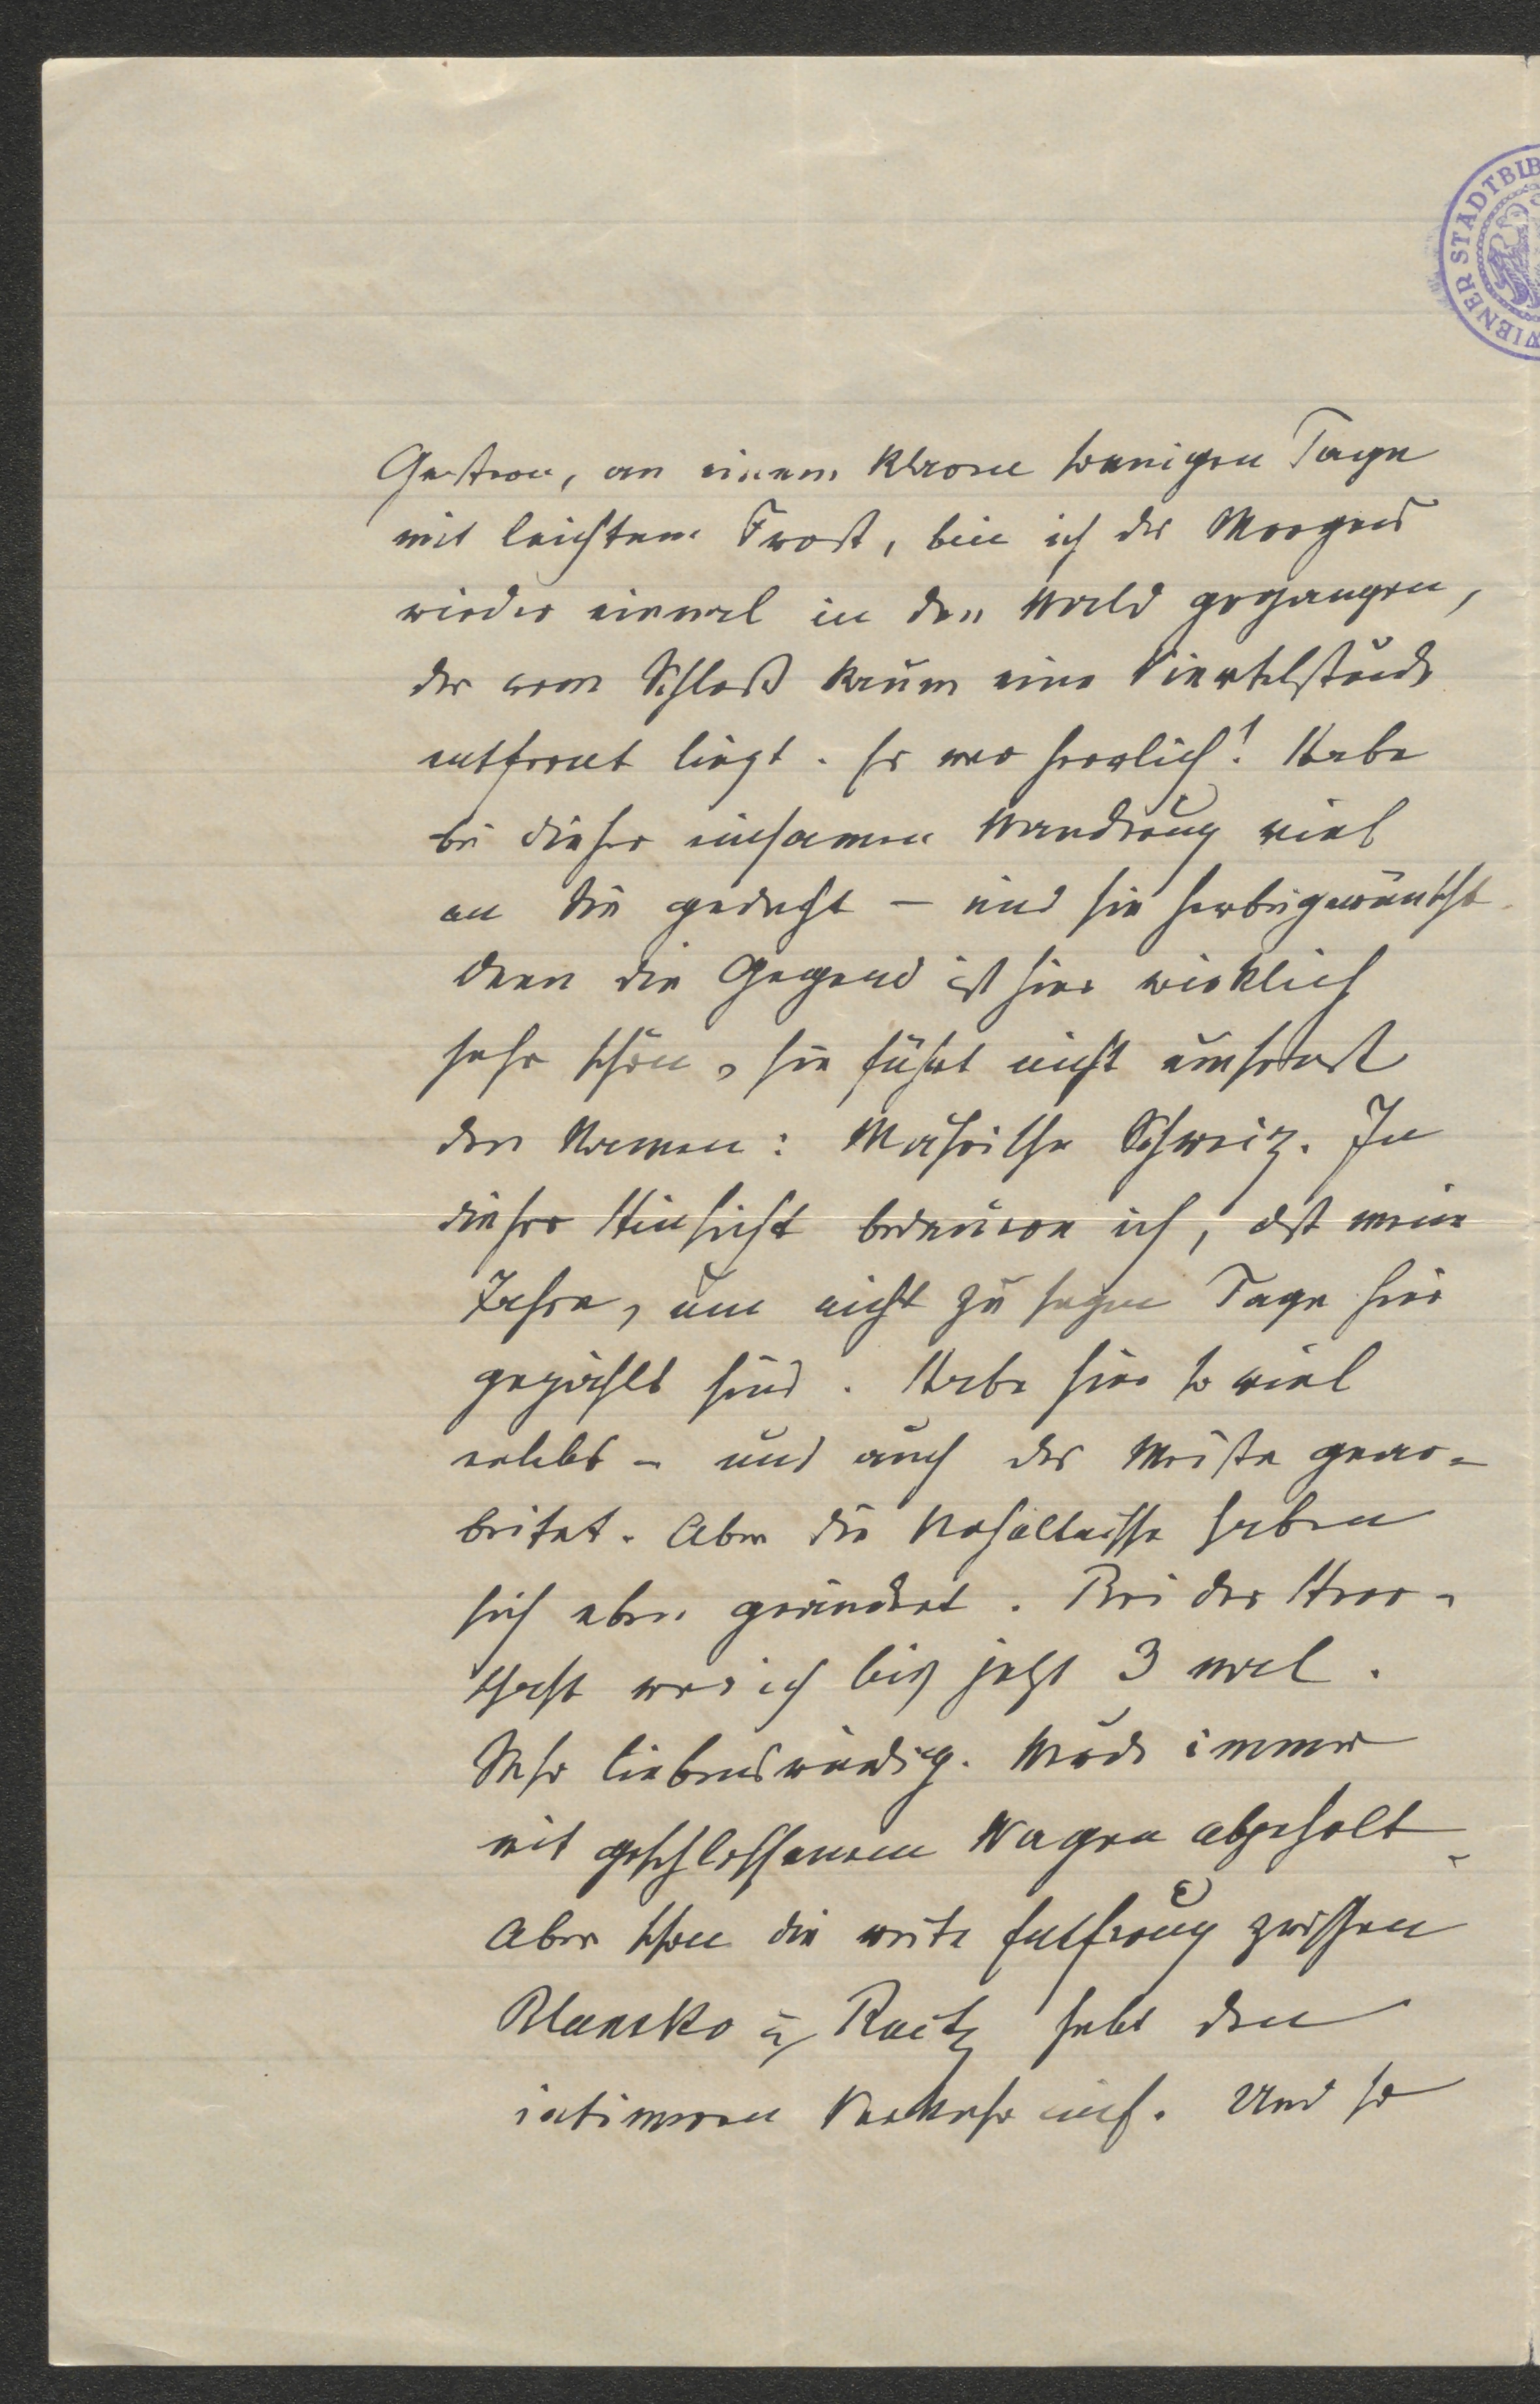 WIENER STADTBIB
Gestern, an einem klaren sonnigen Tage
mit leichtem Frost, bin ich des Morgens
wieder einmal in den Wald gegangen,
der vom Schloß kaum eine Viertelstunde
entfernt liegt. Es war herrlich! Habe
bei dieser einsamen Wandrung viel
an Sie gedacht – und Sie herbeigewünscht
denn die Gegend ist hier wirklich
sehr schön, sie führt nicht umsonst
den Namen: Mährische Schweiz. In
dieser Hinsicht bedauere ich, daß meine
Jahre, um nicht zu sagen Tage hier
gezählt sind. Habe hier so viel
erlebt – und auch das Meiste gear-
beitet. Aber die Verhältnisse haben
sich eben geändert. Bei der Herr-
schaft war ich bis jetzt 3 mal.
Sehr liebenswürdig. Wurde immer
mit geschlossenem Wagen abgeholt –
Aber schon die weite Entfernung zwischen
Blansko u Raitz hebt den
intimeren Verkehr auf. Und so